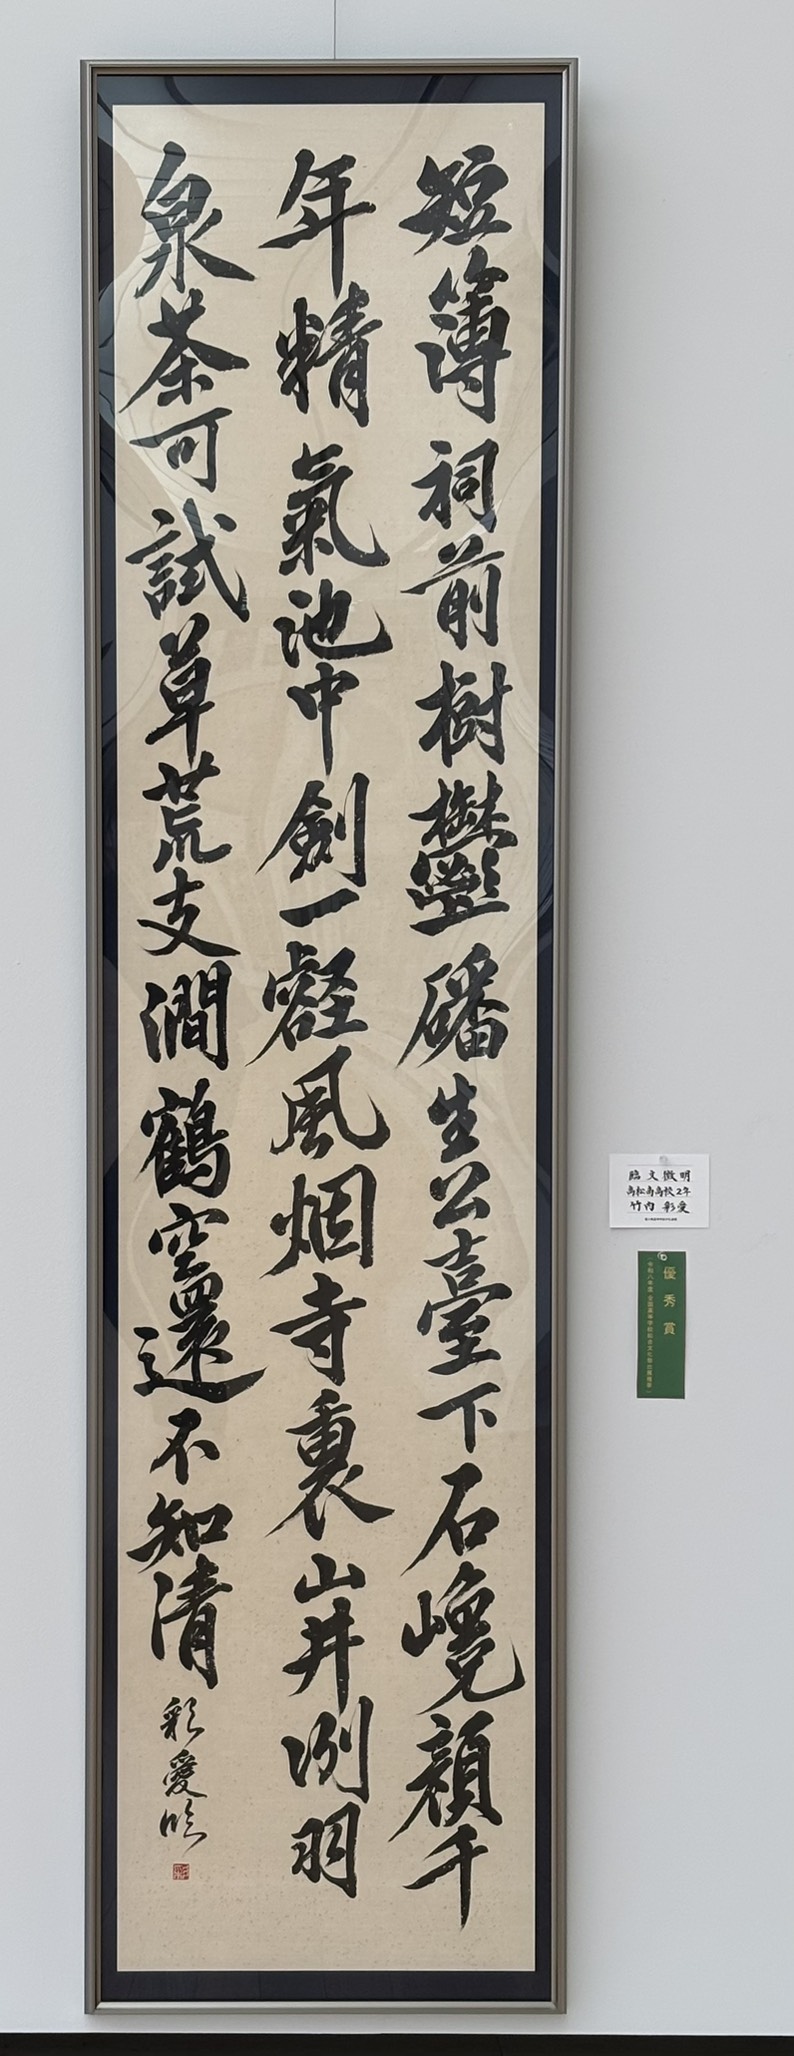 短簿祠前樹鬱磻生公臺下石巉顔千
年精氣池中劍一壑風烟寺裏山井洌羽
泉茶可試草荒支澗鶴空還不知清
彩愛臨
臨 文徴明
高松南高校2年
竹内 彩愛
優秀賞
令和八年度 全国高等学校総合文化祭